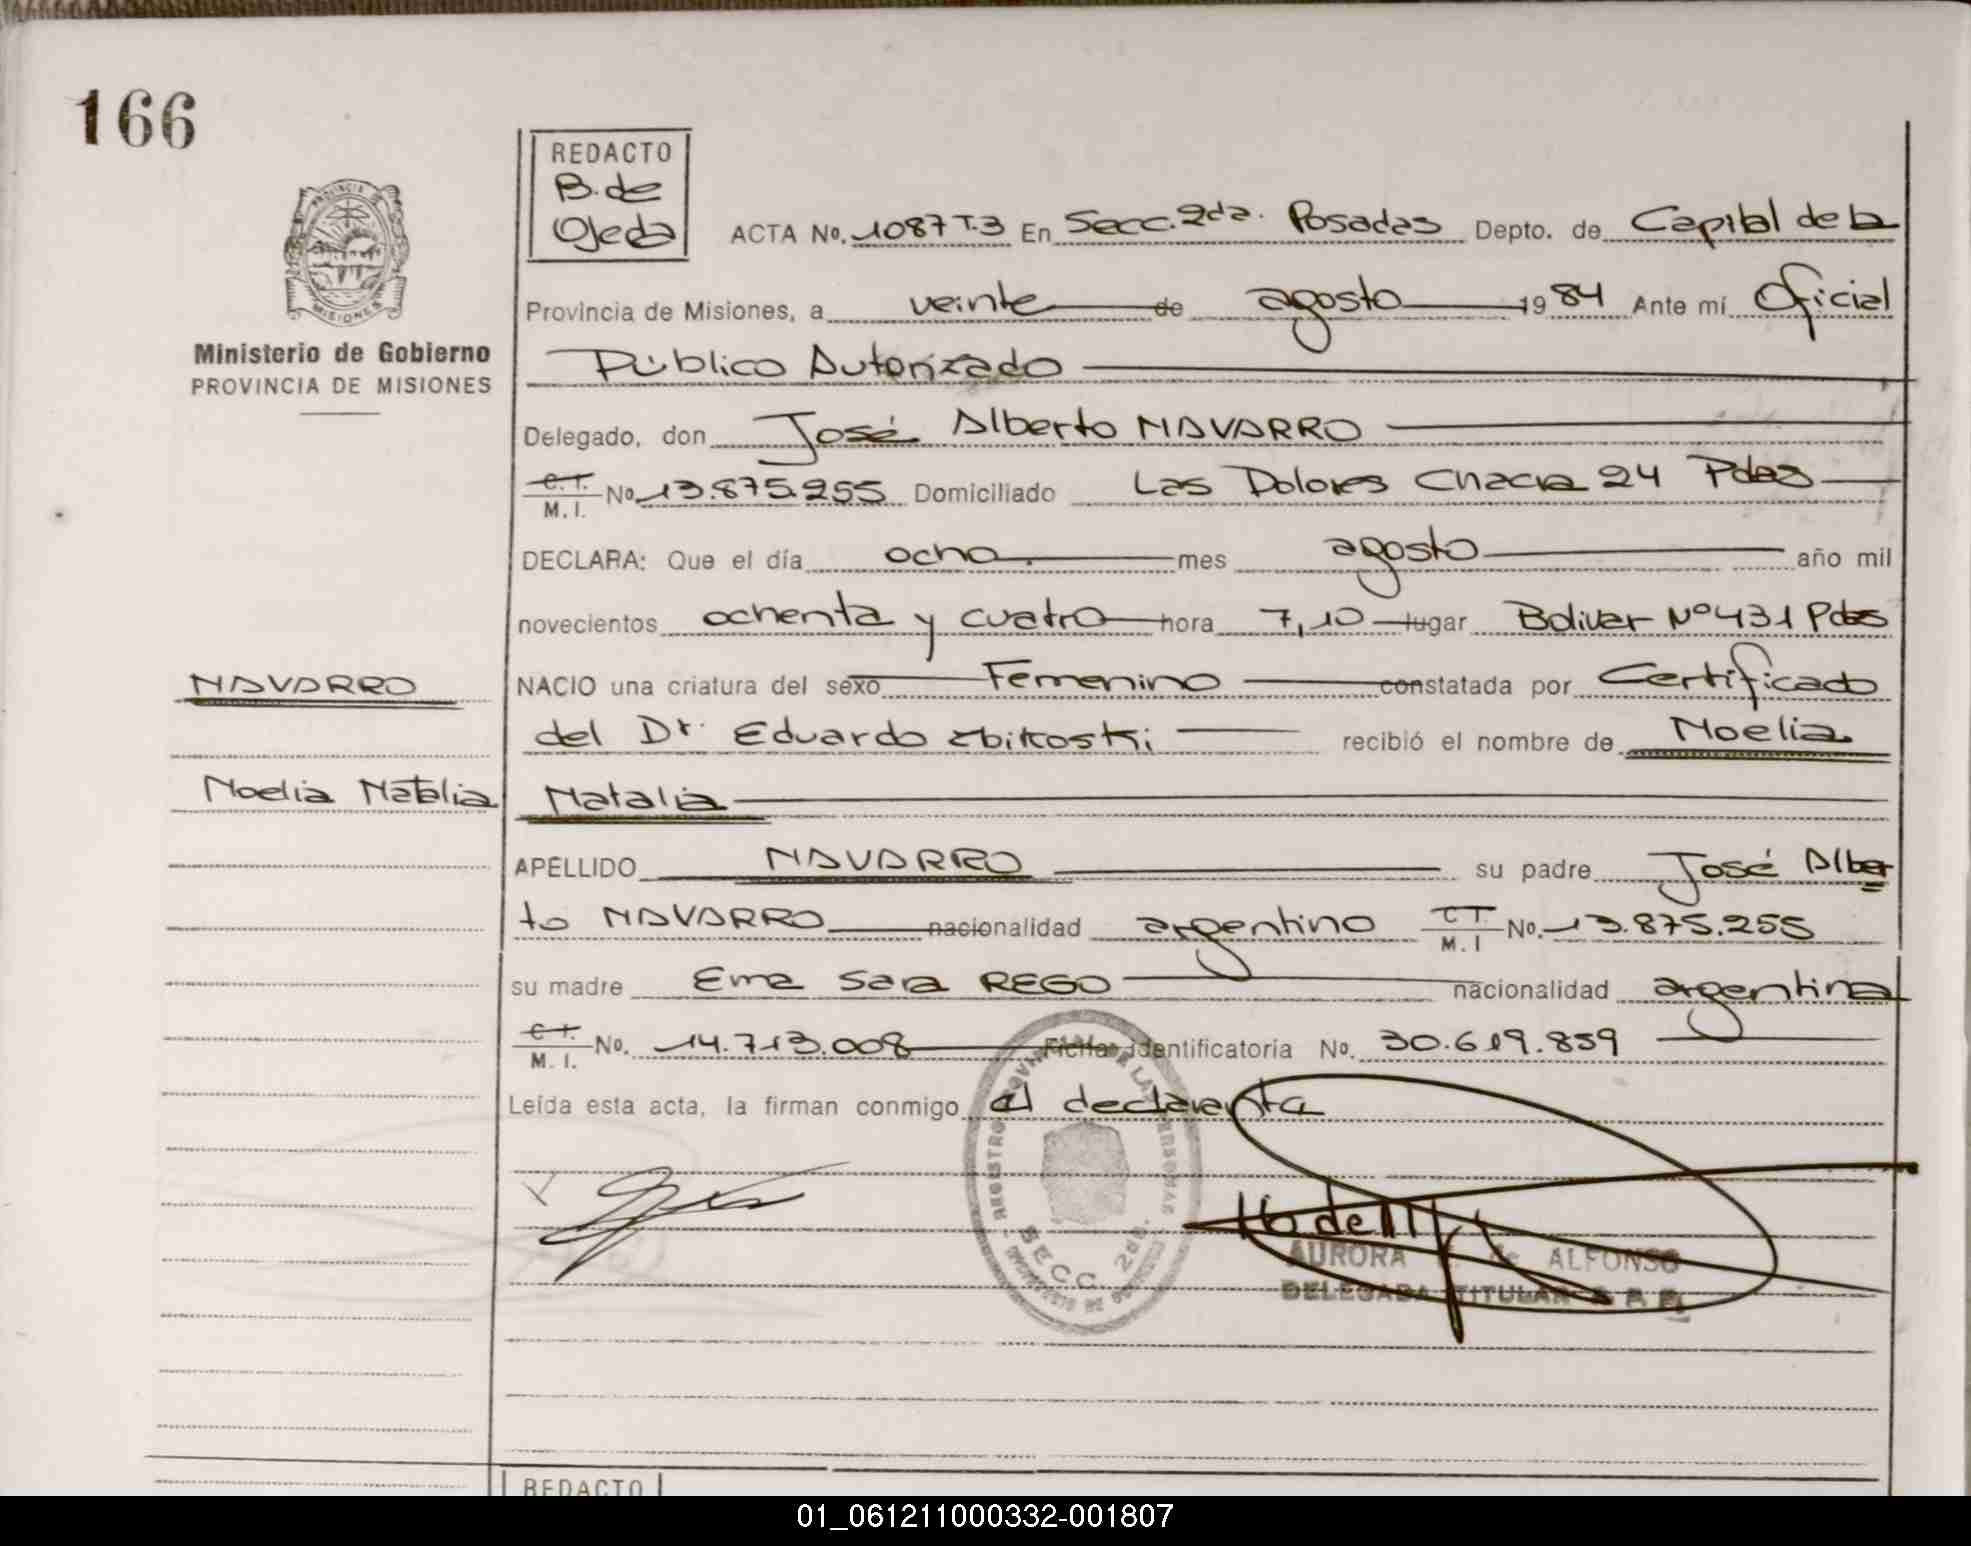 166
PROVINCIA DE
MISIONES
Ministerio de Gobierno
PROVINCIA DE MISIONES
REDACTO
B. de
Ojeda
ACTA No. 1087 T.3 En Secc. 2da. Posadas Depto. de Capital de la
Provincia de Misiones, a veinte de agosto 1984 Ante mí Oficial
Público Autorizado
Delegado, don José Alberto NAVARRO
C.I.
M. I. No 13.875.255 Domiciliado Las Dolores Chacra 24 Pdas
DECLARA: Que el día ocho mes agosto año mil
novecientos ochenta y cuatro hora 7,10 lugar Bolivar Nº 431 Pdas
NAVARRO
NACIO una criatura del sexo Femenino constatada por Certificado
del Dr. Eduardo Zbikoski recibió el nombre de Noelia
Noelia Natalia
Natalia
APELLIDO NAVARRO su padre José Alber
to NAVARRO nacionalidad argentino C.I.
M. I No. 13.875.255
su madre Ema Sara REGO nacionalidad argentina
C.I.
M. I. No. 14.713.008 Ficha identificatoria No. 30.619.859
Leída esta acta, la firman conmigo el declarante
SECC. 2da.
AURORA de ALFONSO
DELEGADA TITULAR
REDACTO
01_061211000332-001807